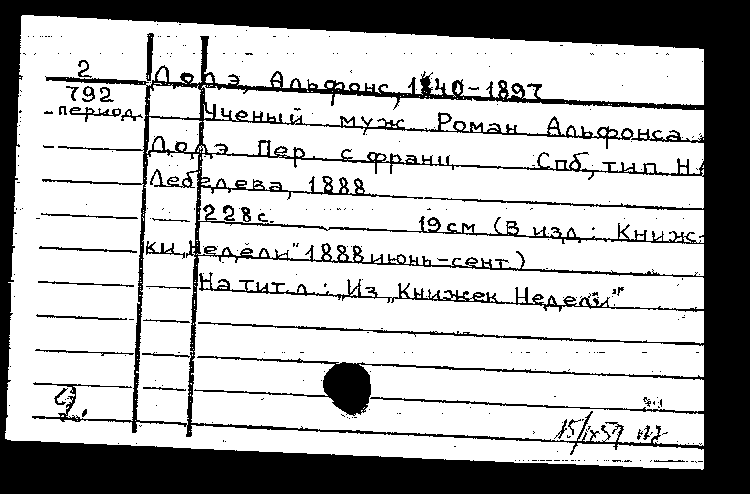 2
792
период.
Додэ, Альфонс, 1840-1897
Ученый муж Роман Альфонса
Додэ Пер. с франц. Спб, тип. Н
Лебедева, 1888
228с. 19см (В изд.: Книж-
ки „Недели" 1888 июнь-сент.)
На тит. л.: „Из „Книжек Недели"
15/IX59